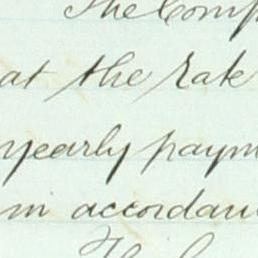 The Comp
at the rate
yearly paym
in accordan
The